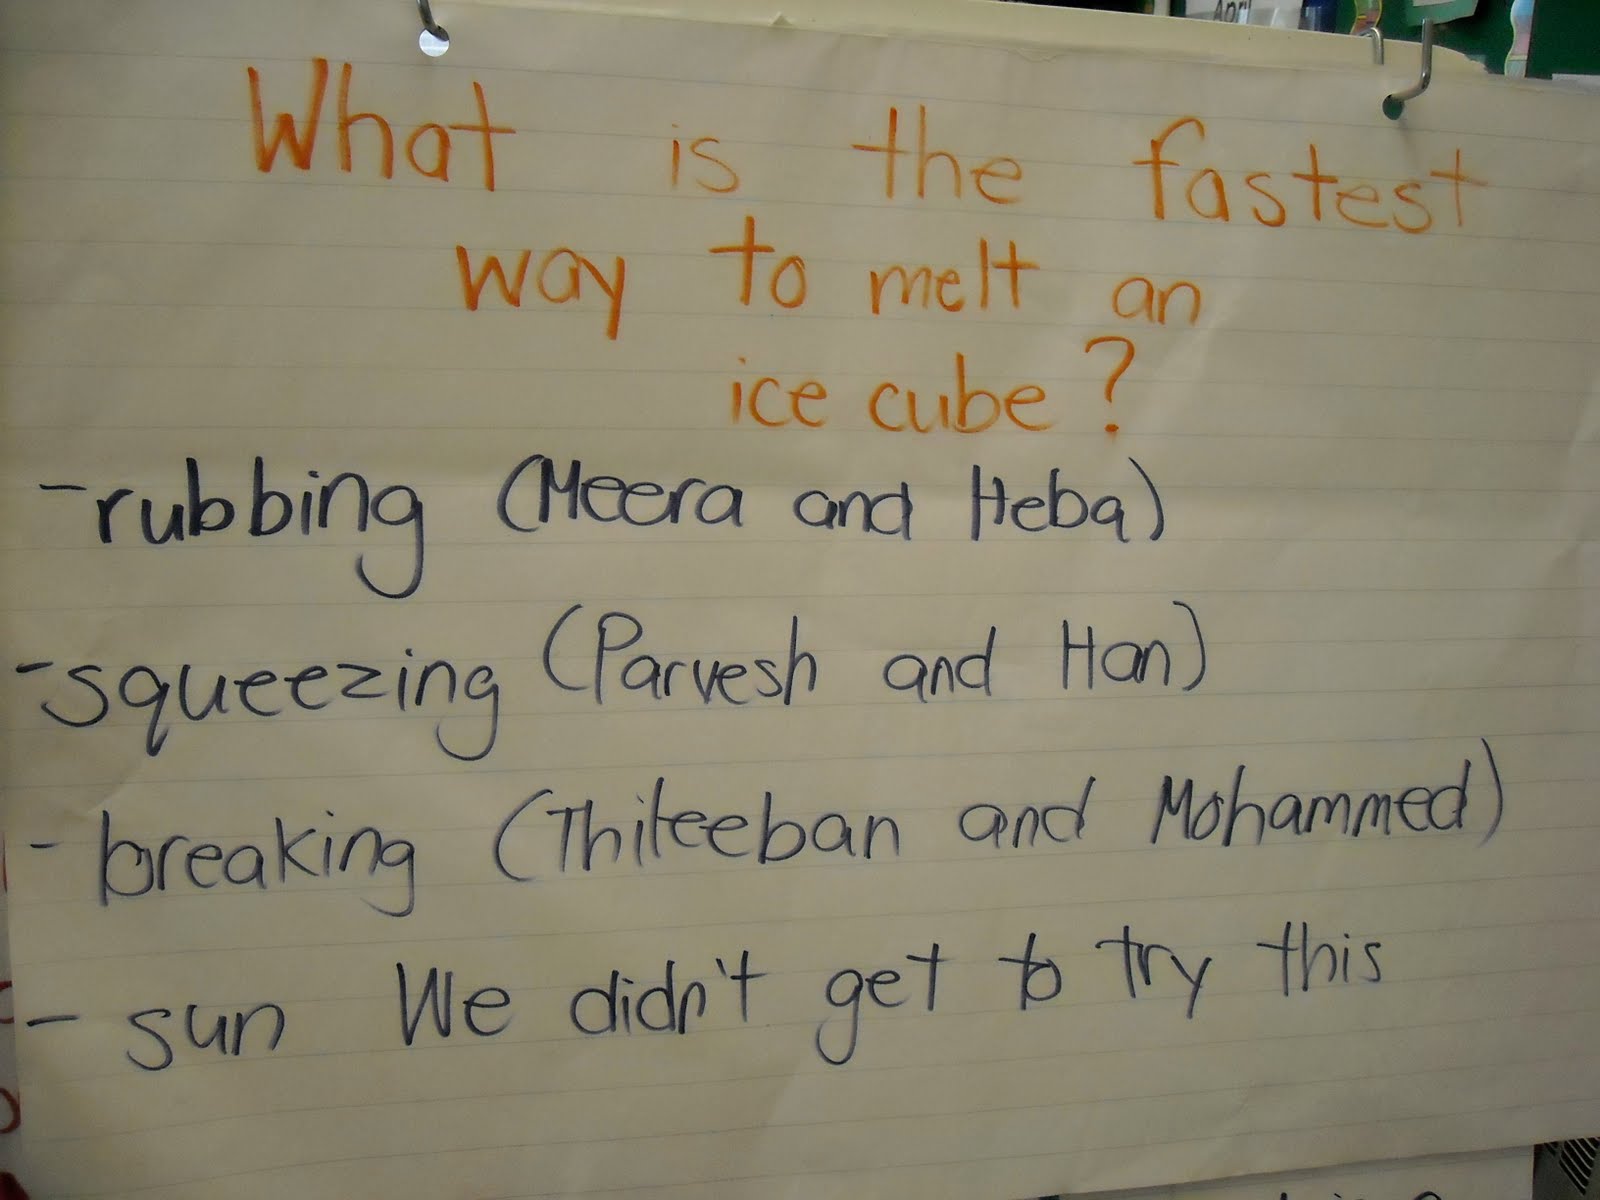 April
What is the fastest
way to melt an
ice cube?
-rubbing (Meera and Heba)
-squeezing (Parvesh and Han)
- breaking (Thileeban and Mohammed)
- sun We didn't get to try this